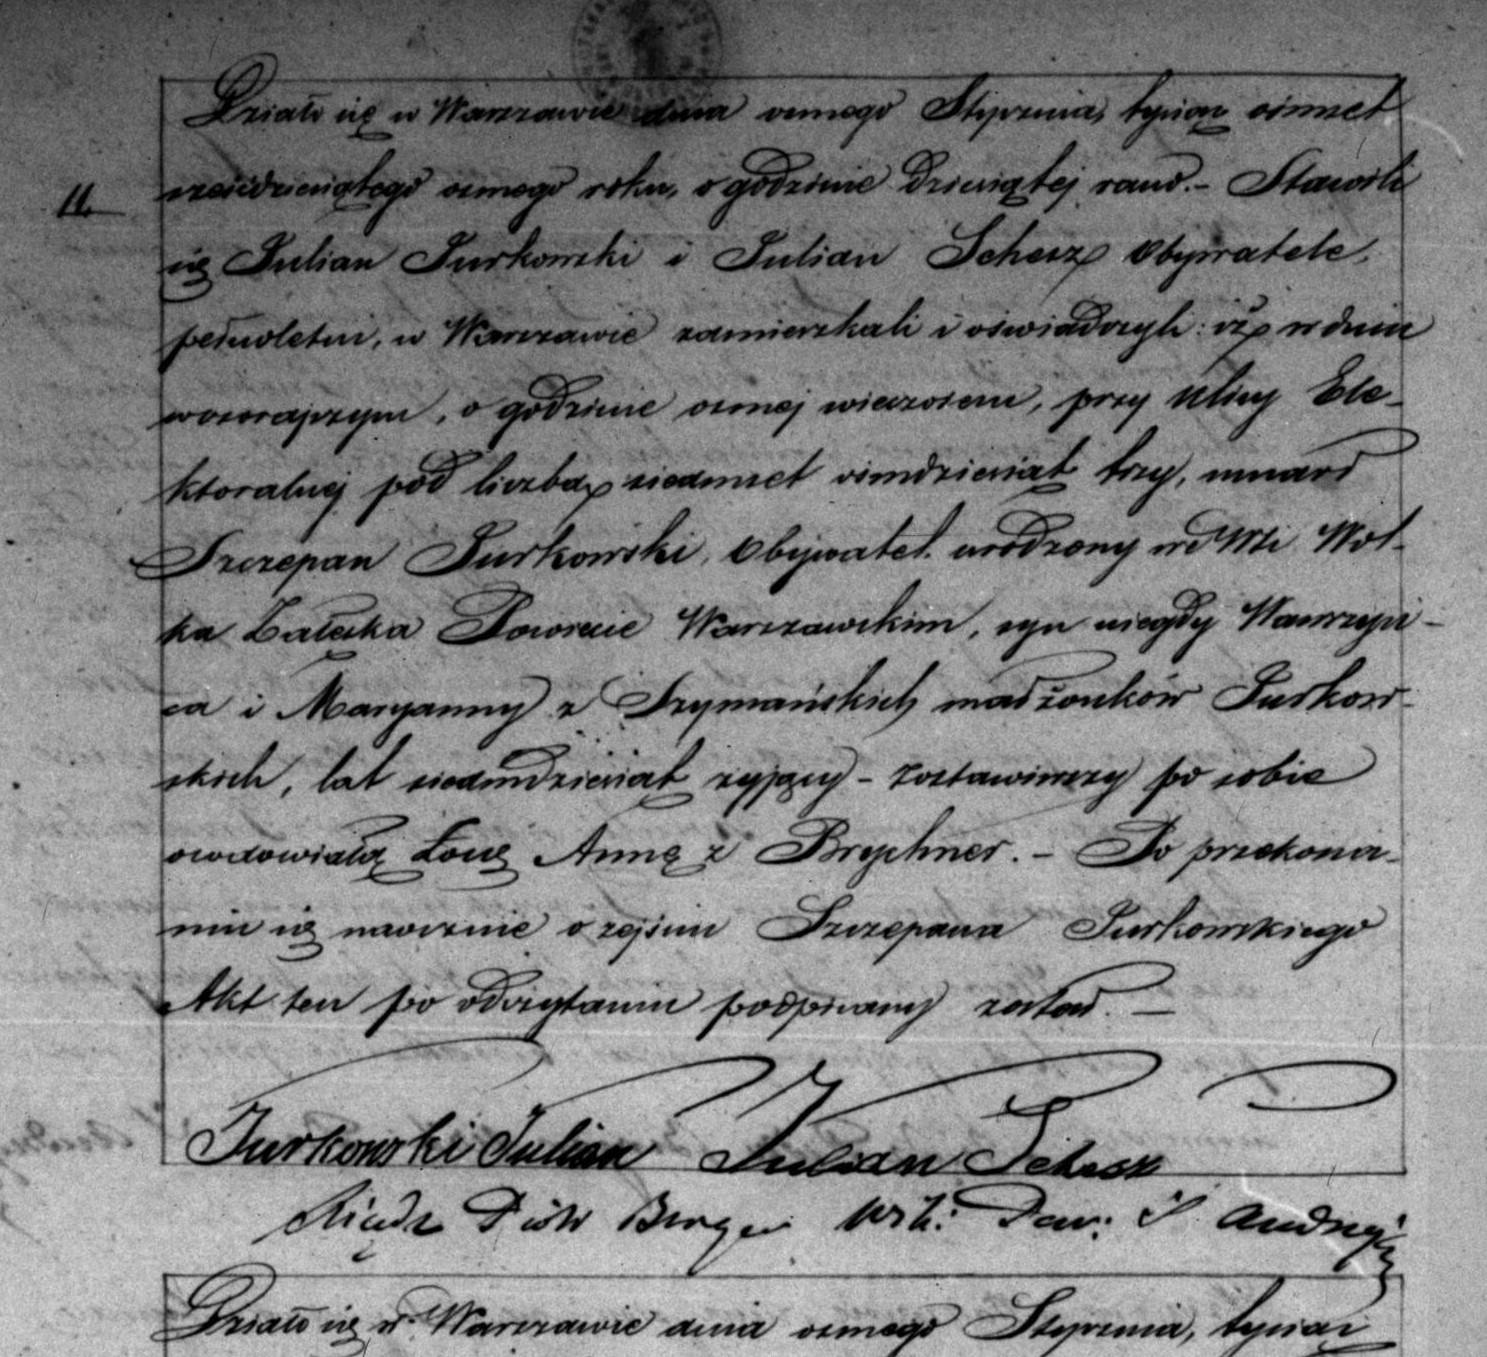 Działo się w Warszawie dnia ósmego Stycznia, tysiąc ośmset
sześćdziesiątego ósmego roku, o godzinie dziewiątej rano. – Stawili
11.
się Julian Jurkowski i Julian Schesz Obywatele,
pełnoletni, w Warszawie zamieszkali i oświadczyli: iż w dniu
wczorajszym, o godzinie ósmej wieczorem, przy ulicy Ele-
ktoralnej pod liczbą siedmset ośmdziesiąt trzy, umarł
Szczepan Jurkowski, Obywatel, urodzony we Wsi Wol-
ka Załuska Powiecie Warszawskim, syn niegdy Wawrzyń-
ca i Maryanny z Szymańskich małżonków Jurkow-
skich, lat siedmdziesiąt żyjący – zostawiwszy po sobie
owdowiałą Żonę Annę z Brychner. – Po przekona-
niu się naocznie o zejściu Szczepana Jurkowskiego
Akt ten po odczytaniu podpisany został. —
Jurkowski Julian Julian Schesz
Ksiądz Piotr Berger Wik: Par: Ś. Andrzeja
Działo się w Warszawie dnia ósmego Stycznia, tysiąc